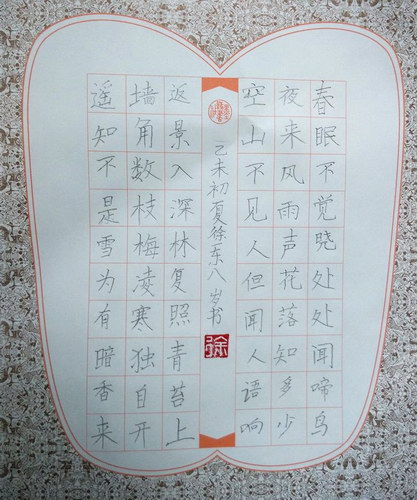 春眠不觉晓处处闻啼鸟
夜来风雨声花落知多少
空山不见人但闻人语响
乙未初夏徐东八岁书
徐
返景入深林复照青苔上
墙角数枝梅凌寒独自开
遥知不是雪为有暗香来